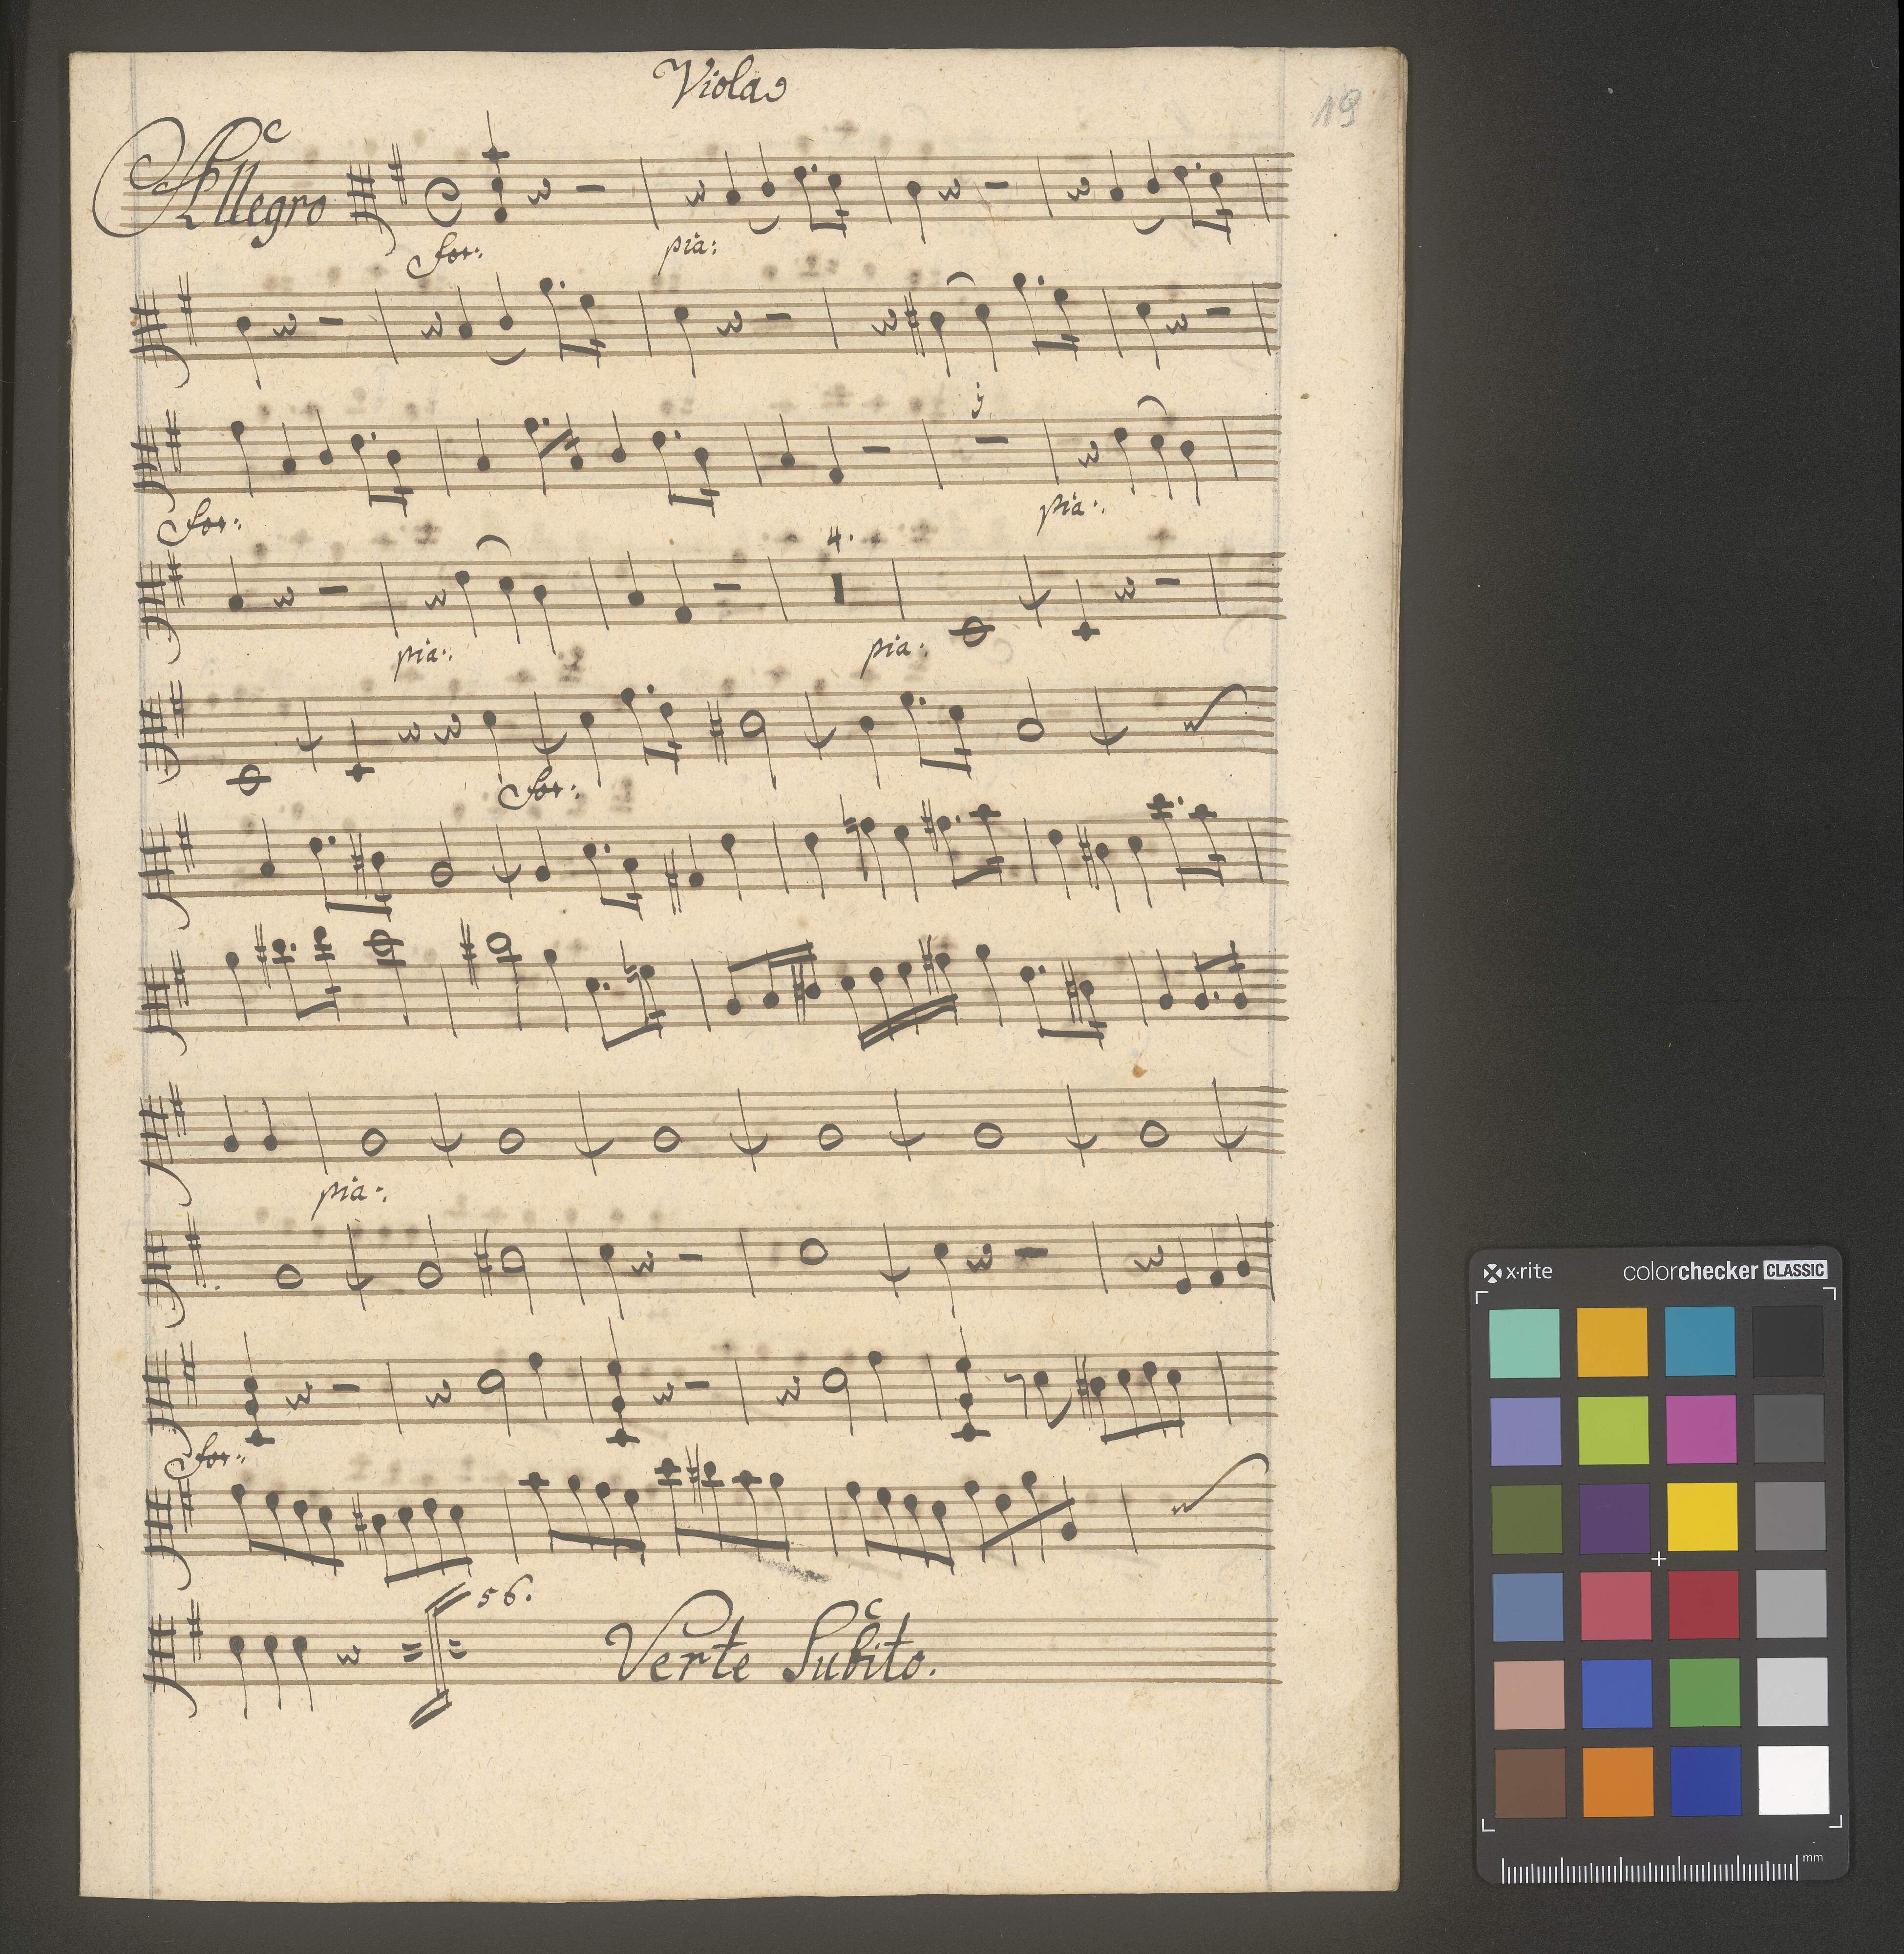 Viola
19
Allegro
for: pia:
j
for: pia:
4.
pia: pia:
for:
pia:
for:
56.
Verte Subito.
x·rite colorchecker CLASSIC
mm